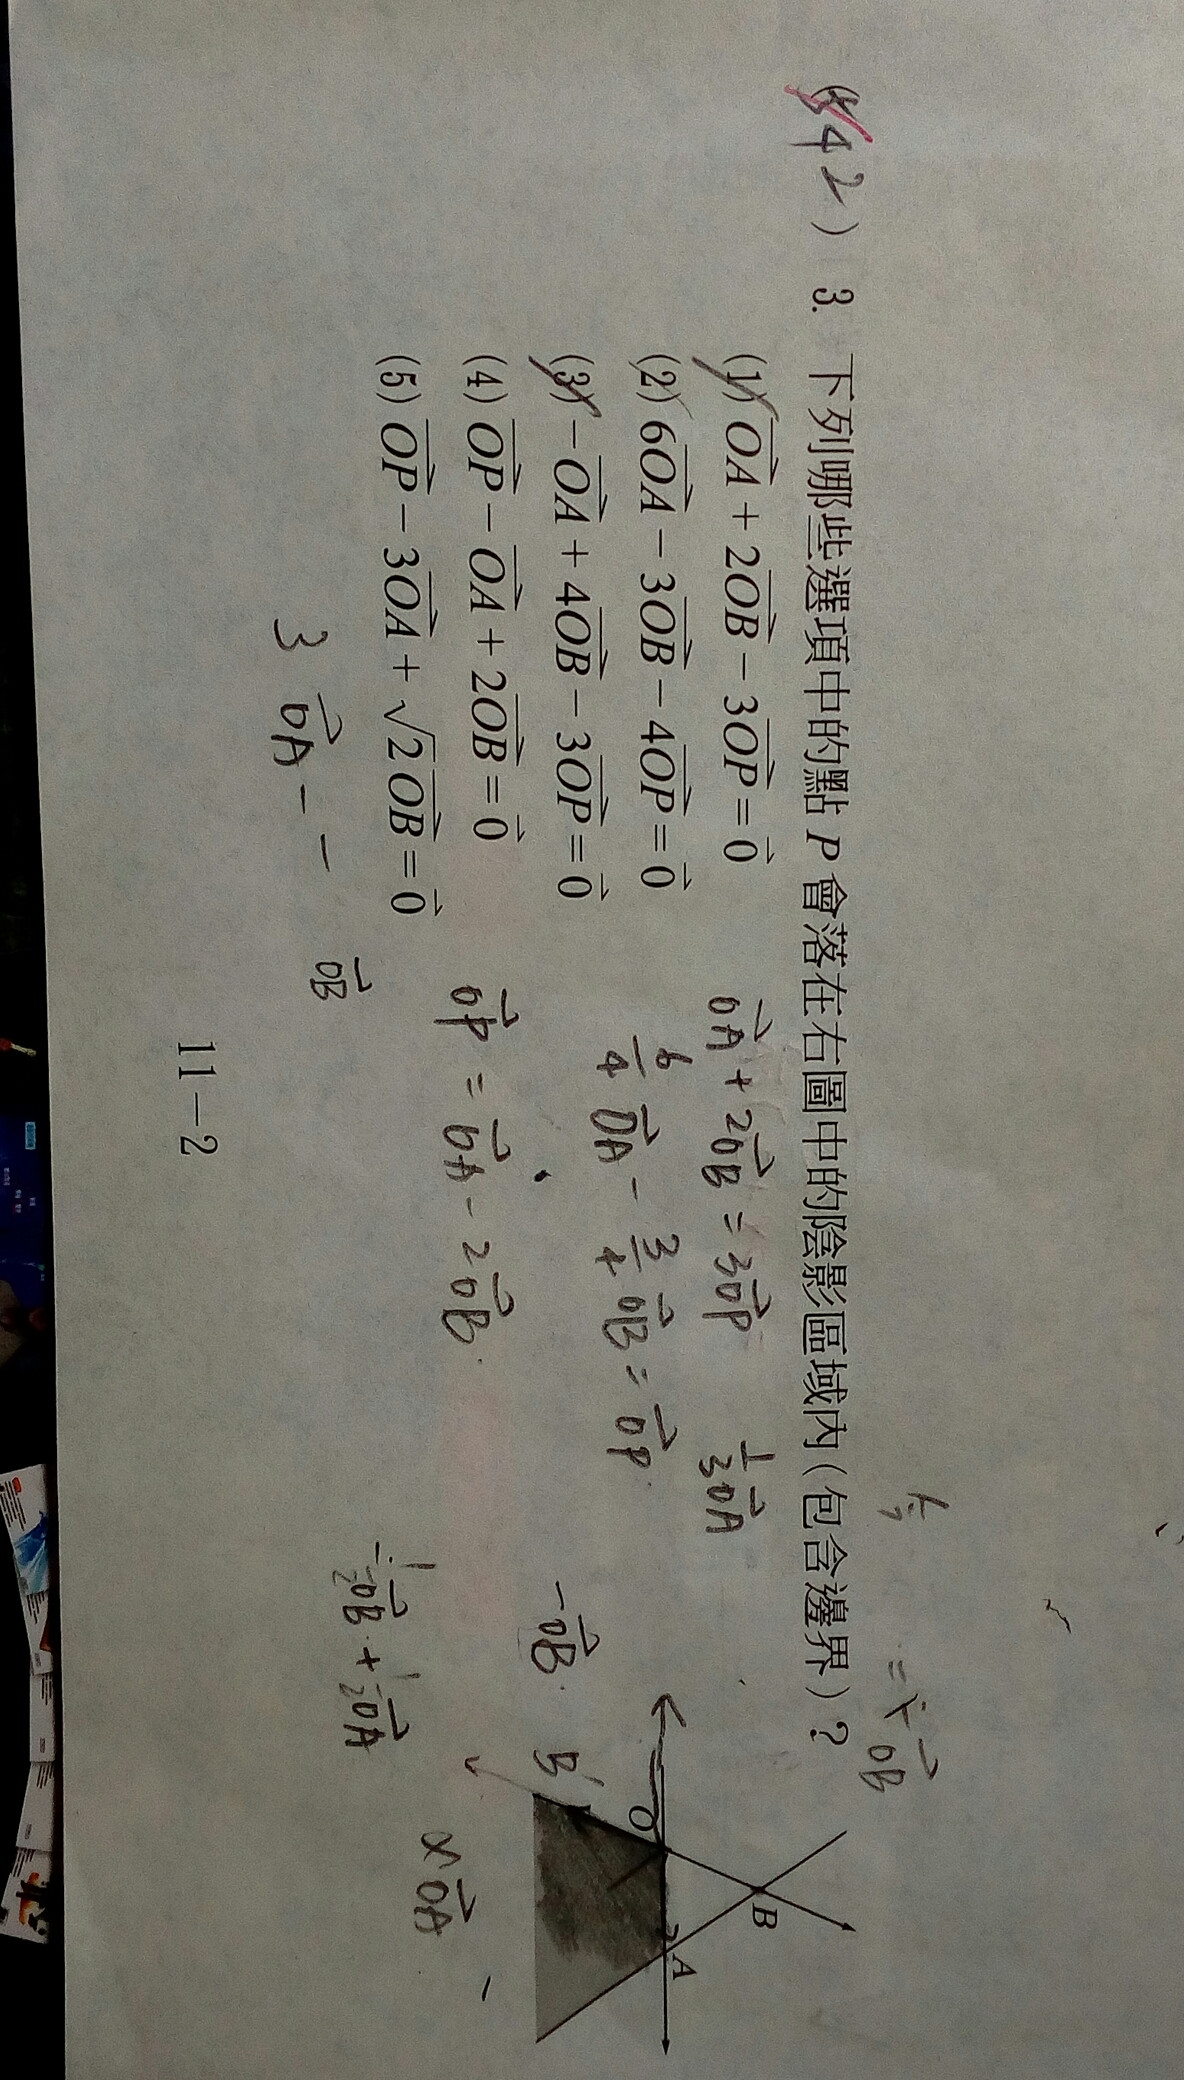 42）3. 下列哪些選項中的點 P 會落在右圖中的陰影區域內（包含邊界）？
(1) OA + 2OB − 3OP = 0
(2) 6OA − 3OB − 4OP = 0
(3) −OA + 4OB − 3OP = 0
(4) OP − OA + 2OB = 0
(5) OP − 3OA + √2OB = 0
OA + 2OB = 3OP
1/3 OA
6/4 OA − 3/4 OB = OP
OP = OA − 2OB
3 OA − − OB
OB
−OB
B'
O
A
B
−1/2 OB + 1/2 OA
OA
11－2